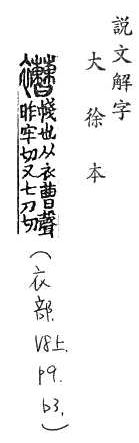 説文解字
大徐本
𧝬㡓也从衣曹聲
昨牢切又七刀切
(衣部. V8上. p9. b3.)